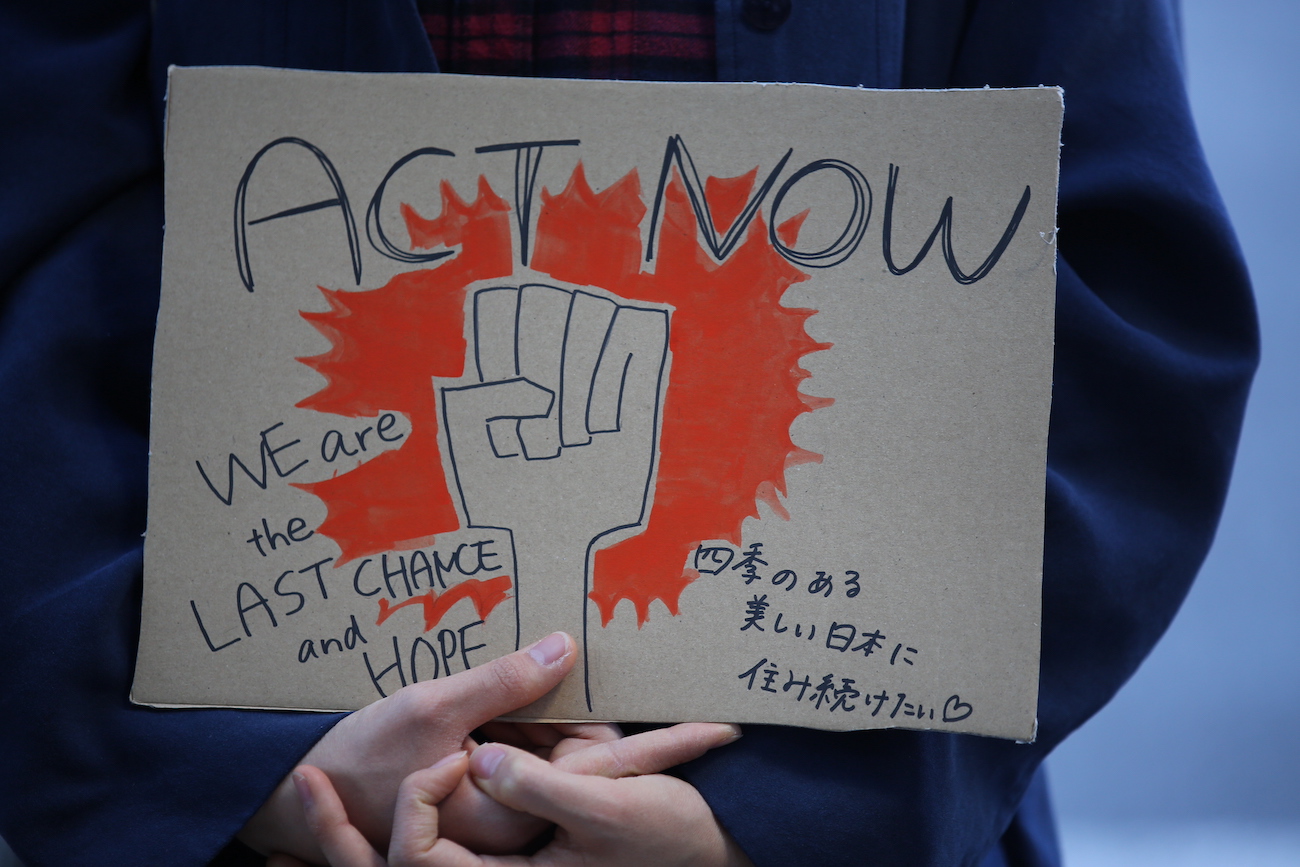 ACT NOW
WE are
the
LAST CHANCE
and
HOPE
四季のある
美しい日本に
住み続けたい♡